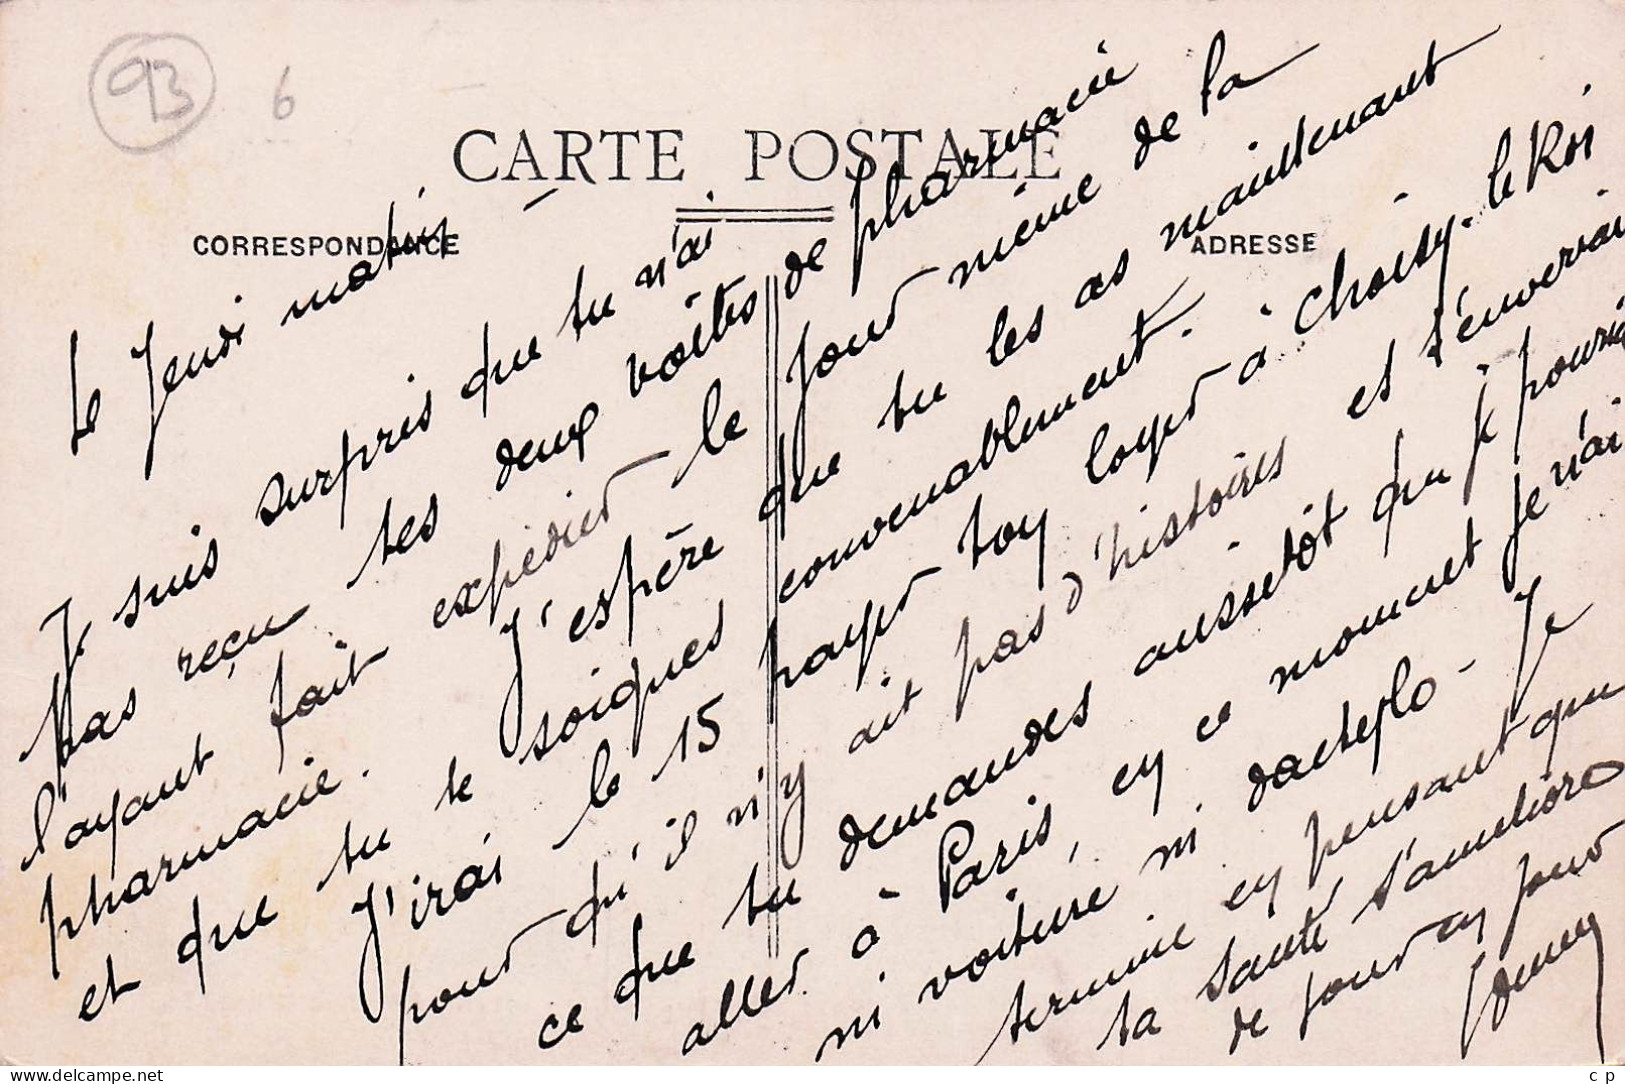 93 6
CARTE POSTALE
CORRESPONDANCE
ADRESSE
Le Jeudi matin –
Je suis surpris que tu n'ai
pas reçu tes deux boîtes de pharmacie
l'ayant fait expédier le jour même de la
pharmacie. J'espère que tu les as maintenant
et que tu te soignes convenablement.
J'irai le 15 payer ton loyer à Choisy-le Roi
pour qu'il n'y ait pas d'histoires et t'enverrai
ce que tu demandes aussitôt que je pourrai
aller à Paris, en ce moment je n'ai
ni voiture ni dactylo – Je
termine en pensant que
ta santé s'améliore
de jour en jour